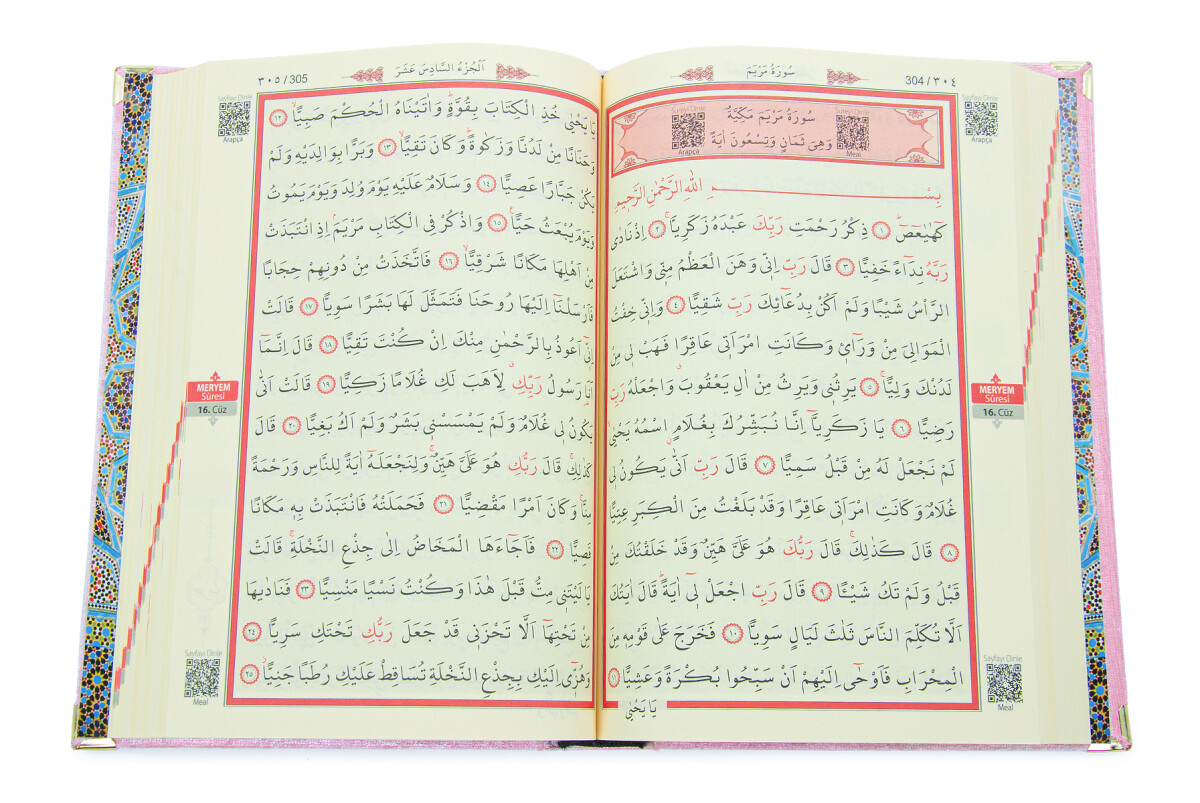 304/٣٠٤
سُورَةُ مَرْيَمَ
Sayfayı Dinle
Arapça
Sureyi Dinle
Arapça
Sureyi Dinle
Meal
سُورَةُ مَرْيَمَ مَكِّيَّةٌ
وَهِيَ ثَمَانٍ وَتِسْعُونَ اٰيَةً
بِسْمِ اللّٰهِ الرَّحْمٰنِ الرَّحِيمِ
كٓهٰيٰعٓصٓ ١ ذِكْرُ رَحْمَتِ رَبِّكَ عَبْدَهُ زَكَرِيَّاۚ ٢ اِذْ نَادٰى
رَبَّهُ نِدَٓاءً خَفِيًّا ٣ قَالَ رَبِّ اِنّ۪ي وَهَنَ الْعَظْمُ مِنّ۪ي وَاشْتَعَلَ
الرَّاْسُ شَيْبًا وَلَمْ اَكُنْ بِدُعَٓائِكَ رَبِّ شَقِيًّا ٤ وَاِنّ۪ي خِفْتُ
الْمَوَالِيَ مِنْ وَرَٓاء۪ي وَكَانَتِ امْرَاَت۪ي عَاقِرًا فَهَبْ ل۪ي مِنْ
لَدُنْكَ وَلِيًّاۙ ٥ يَرِثُن۪ي وَيَرِثُ مِنْ اٰلِ يَعْقُوبَ وَاجْعَلْهُ رَبِّ
رَضِيًّا ٦ يَا زَكَرِيَّٓا اِنَّا نُبَشِّرُكَ بِغُلَامٍ اسْمُهُ يَحْيٰىۙ
لَمْ نَجْعَلْ لَهُ مِنْ قَبْلُ سَمِيًّا ٧ قَالَ رَبِّ اَنّٰى يَكُونُ ل۪ي
غُلَامٌ وَكَانَتِ امْرَاَت۪ي عَاقِرًا وَقَدْ بَلَغْتُ مِنَ الْكِبَرِ عِتِيًّا
٨ قَالَ كَذٰلِكَۚ قَالَ رَبُّكَ هُوَ عَلَيَّ هَيِّنٌ وَقَدْ خَلَقْتُكَ مِنْ
قَبْلُ وَلَمْ تَكُ شَيْـًٔا ٩ قَالَ رَبِّ اجْعَلْ ل۪ٓي اٰيَةًۜ قَالَ اٰيَتُكَ
اَلَّا تُكَلِّمَ النَّاسَ ثَلٰثَ لَيَالٍ سَوِيًّا ١٠ فَخَرَجَ عَلٰى قَوْمِه۪ مِنَ
الْمِحْرَابِ فَاَوْحٰٓى اِلَيْهِمْ اَنْ سَبِّحُوا بُكْرَةً وَعَشِيًّا ١١
يَا يَحْيٰى
MERYEM
Sûresi
16. Cüz
Sayfayı Dinle
Meal
٣٠٥/305
اَلْجُزْءُ السَّادِسَ عَشَرَ
Sayfayı Dinle
Arapça
يَا يَحْيٰى خُذِ الْكِتَابَ بِقُوَّةٍۜ وَاٰتَيْنَاهُ الْحُكْمَ صَبِيًّاۙ ١٢
وَحَنَانًا مِنْ لَدُنَّا وَزَكٰوةًۜ وَكَانَ تَقِيًّاۙ ١٣ وَبَرًّا بِوَالِدَيْهِ وَلَمْ
يَكُنْ جَبَّارًا عَصِيًّا ١٤ وَسَلَامٌ عَلَيْهِ يَوْمَ وُلِدَ وَيَوْمَ يَمُوتُ
وَيَوْمَ يُبْعَثُ حَيًّا۟ ١٥ وَاذْكُرْ فِي الْكِتَابِ مَرْيَمَۢ اِذِ انْتَبَذَتْ
مِنْ اَهْلِهَا مَكَانًا شَرْقِيًّاۙ ١٦ فَاتَّخَذَتْ مِنْ دُونِهِمْ حِجَابًا
فَاَرْسَلْنَٓا اِلَيْهَا رُوحَنَا فَتَمَثَّلَ لَهَا بَشَرًا سَوِيًّا ١٧ قَالَتْ
اِنّ۪ٓي اَعُوذُ بِالرَّحْمٰنِ مِنْكَ اِنْ كُنْتَ تَقِيًّا ١٨ قَالَ اِنَّمَٓا
اَنَا۬ رَسُولُ رَبِّكِۗ لِاَهَبَ لَكِ غُلَامًا زَكِيًّا ١٩ قَالَتْ اَنّٰى
يَكُونُ ل۪ي غُلَامٌ وَلَمْ يَمْسَسْن۪ي بَشَرٌ وَلَمْ اَكُ بَغِيًّا ٢٠ قَالَ
كَذٰلِكِۚ قَالَ رَبُّكِ هُوَ عَلَيَّ هَيِّنٌۚ وَلِنَجْعَلَهُٓ اٰيَةً لِلنَّاسِ وَرَحْمَةً
مِنَّاۚ وَكَانَ اَمْرًا مَقْضِيًّا ٢١ فَحَمَلَتْهُ فَانْتَبَذَتْ بِه۪ مَكَانًا
قَصِيًّا ٢٢ فَاَجَٓاءَهَا الْمَخَاضُ اِلٰى جِذْعِ النَّخْلَةِۚ قَالَتْ
يَا لَيْتَن۪ي مِتُّ قَبْلَ هٰذَا وَكُنْتُ نَسْيًا مَنْسِيًّا ٢٣ فَنَادٰيهَا
مِنْ تَحْتِهَٓا اَلَّا تَحْزَن۪ي قَدْ جَعَلَ رَبُّكِ تَحْتَكِ سَرِيًّا ٢٤
وَهُزّ۪ٓي اِلَيْكِ بِجِذْعِ النَّخْلَةِ تُسَاقِطْ عَلَيْكِ رُطَبًا جَنِيًّاۘ ٢٥
MERYEM
Sûresi
16. Cüz
Sayfayı Dinle
Meal